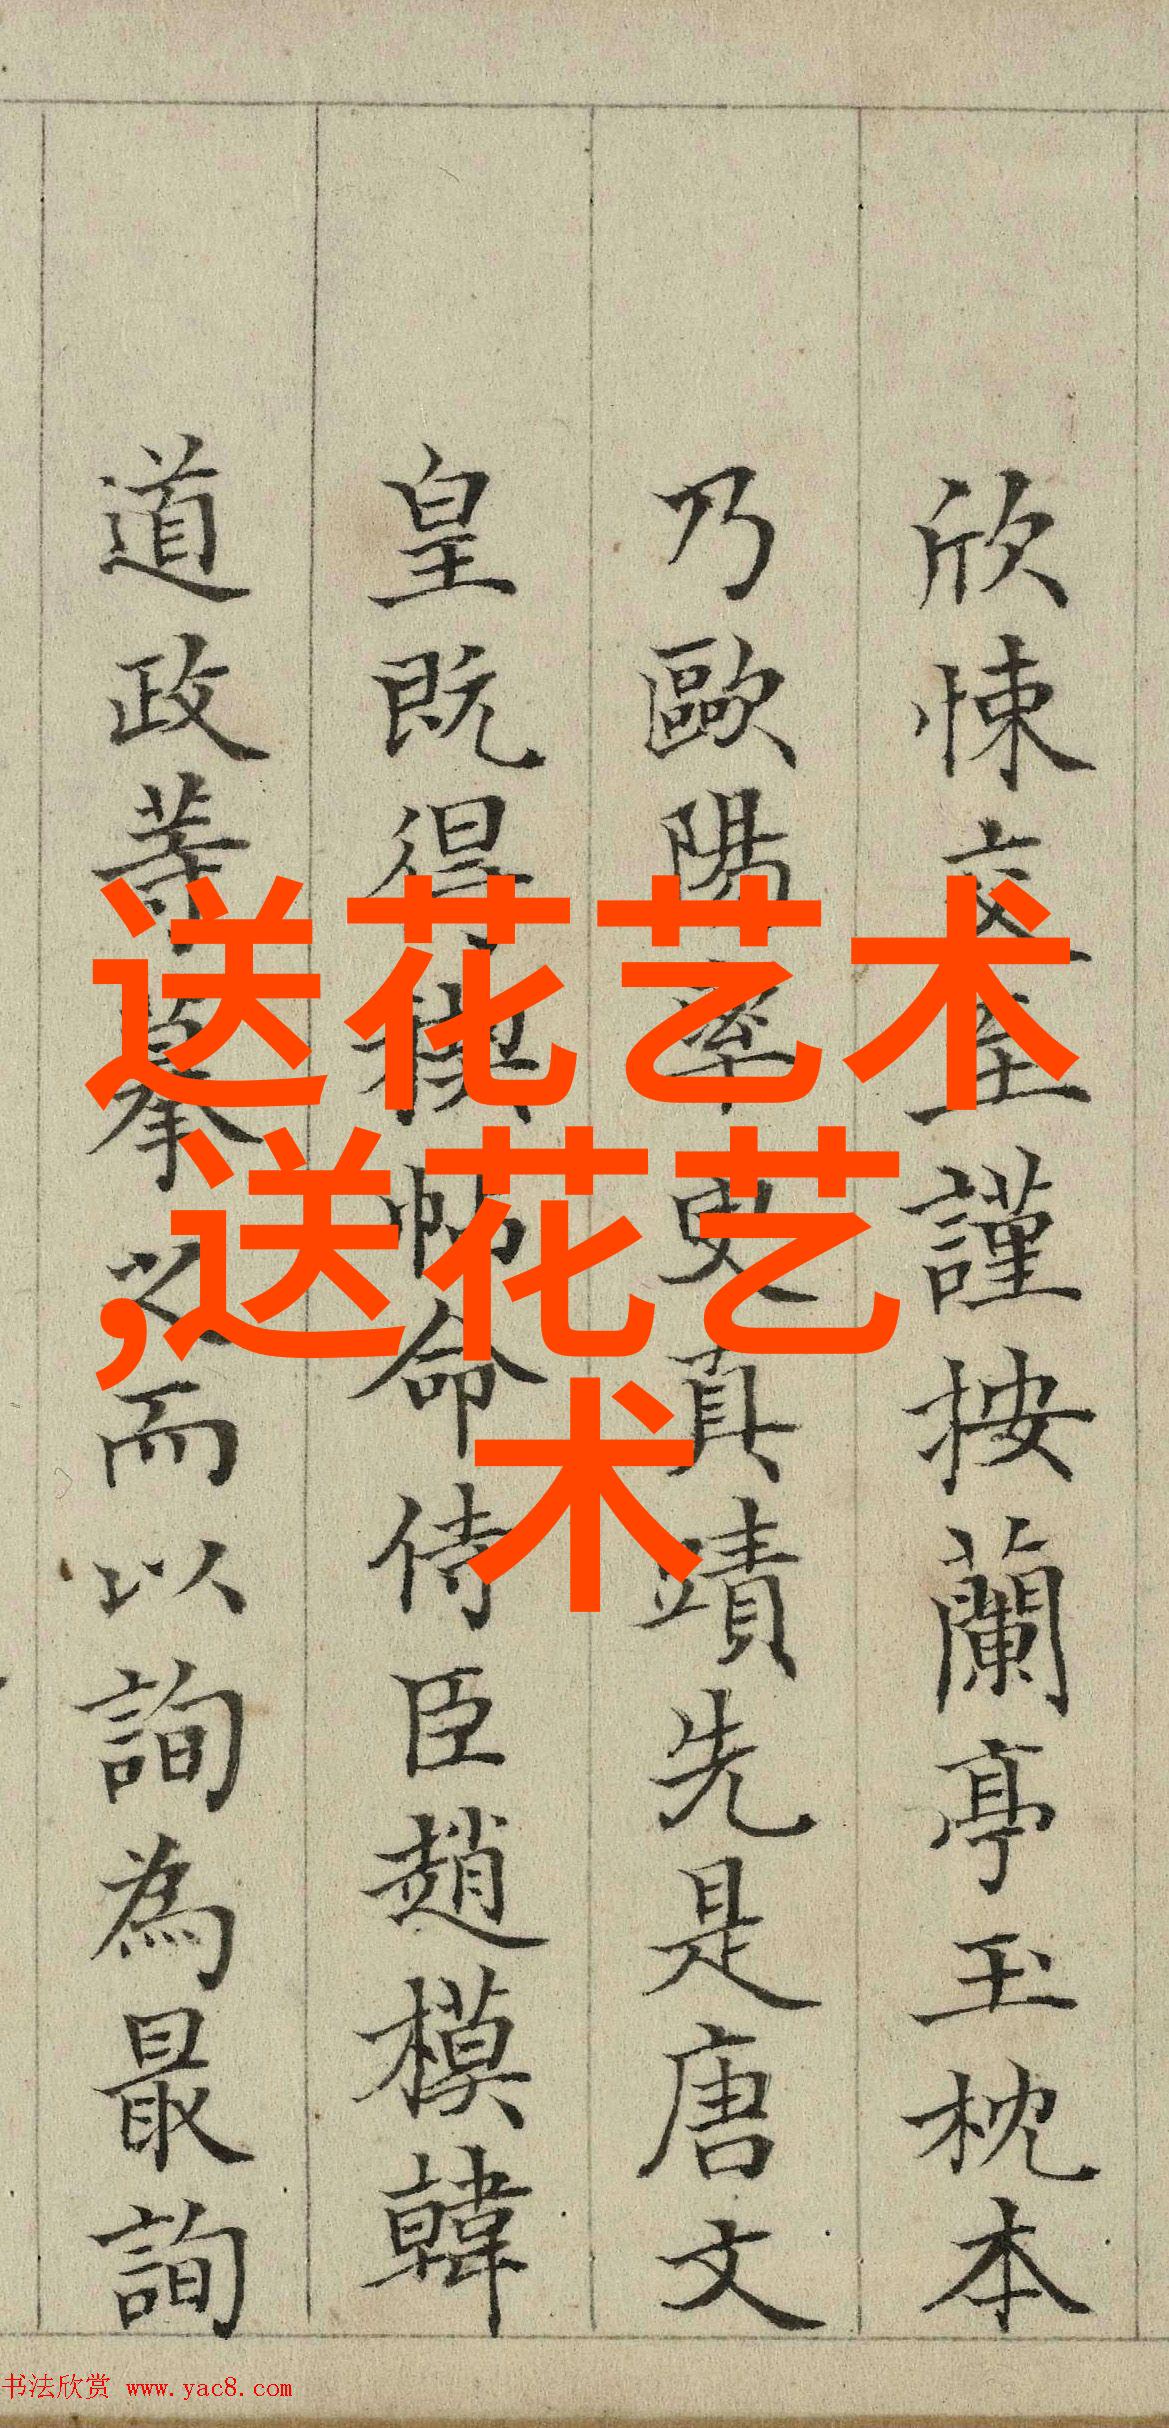 欣悚交至謹按蘭亭玉枕本
乃歐陽率更真蹟先是唐文
皇既得模帖命侍臣趙模韓
道政等摹之而以詢為最詢
送花艺术
,送花艺
术
书法欣赏 www.yac8.com